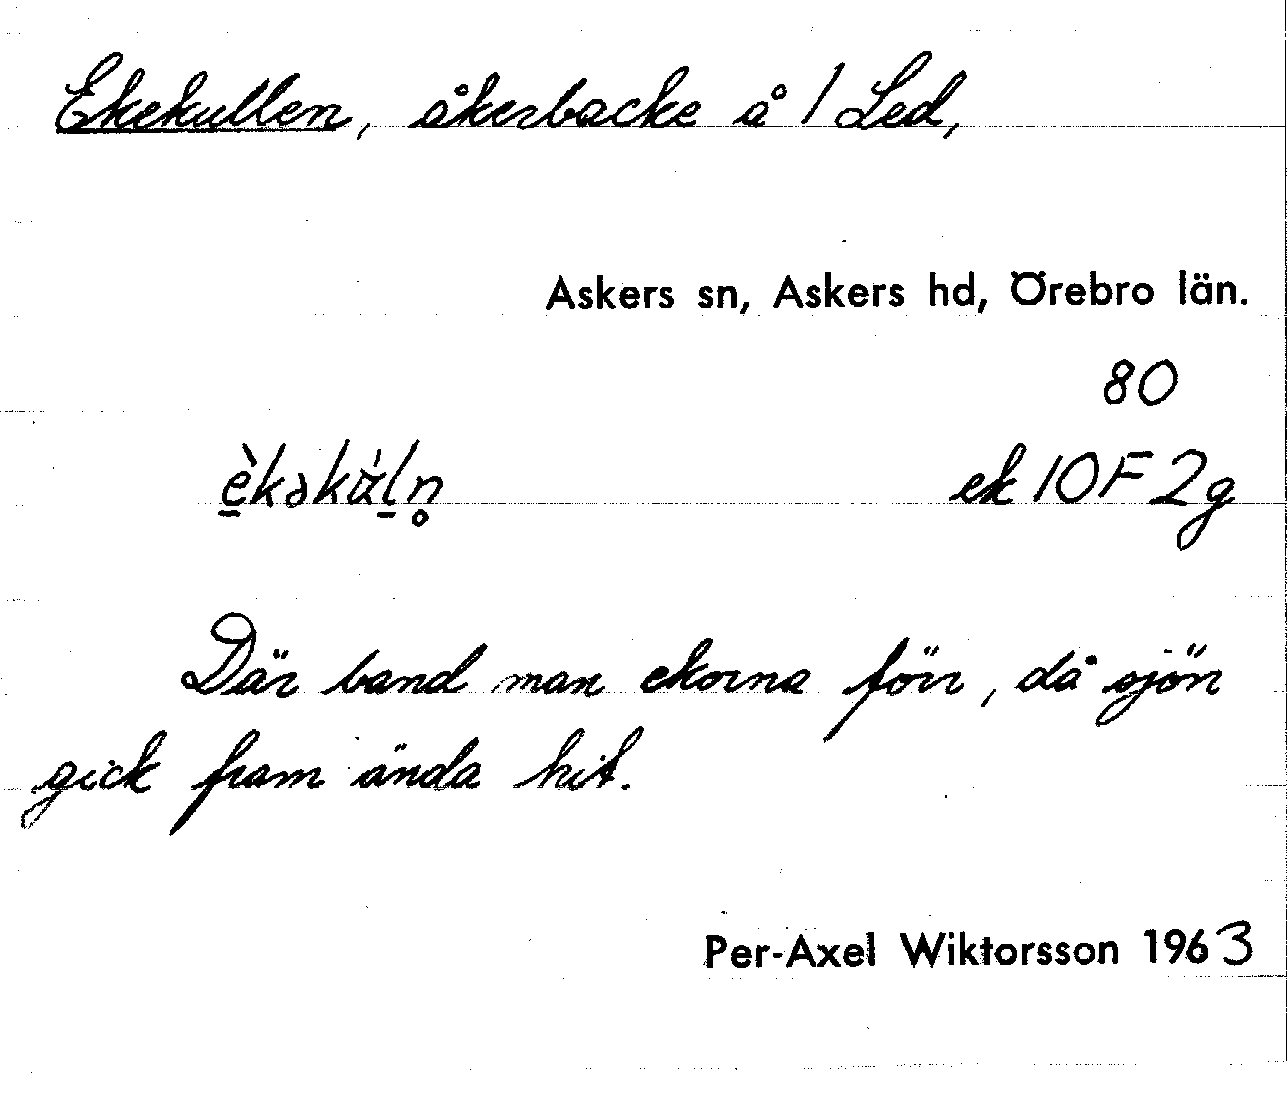 Ekekullen, åkerbacke å 1 Led,
Askers sn, Askers hd, Örebro län.
80
ek 10F 2g
Där band man ekorna förr, då sjön
gick fram ända hit.
Per-Axel Wiktorsson 1963